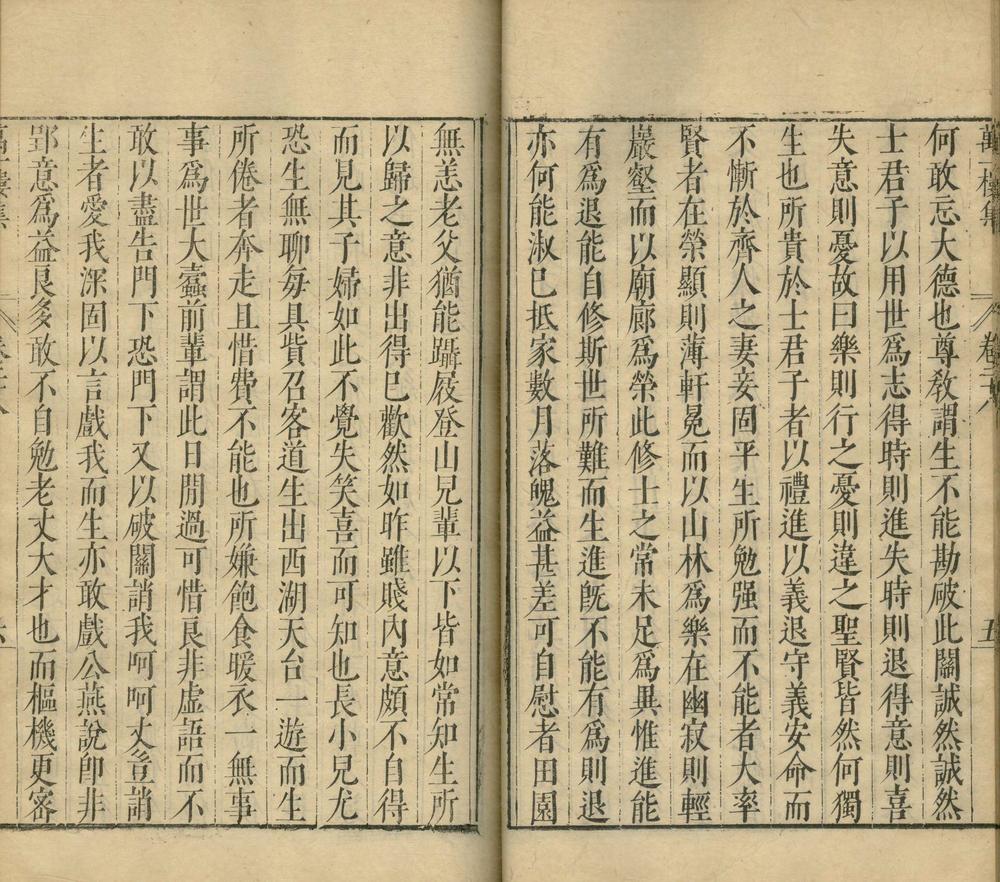 萬一樓集 卷三八 五
何敢忘大德也尊教謂生不能勘破此關誠然誠然
士君子以用世爲志得時則進失時則退得意則喜
失意則憂故曰樂則行之憂則違之聖賢皆然何獨
生也所貴於士君子者以禮進以義退守義安命而
不慚於齊人之妻妾固平生所勉强而不能者大率
賢者在榮顯則薄軒冕而以山林爲樂在幽寂則輕
巖壑而以廟廊爲榮此修士之常未足爲異惟進能
有爲退能自修斯世所難而生進旣不能有爲則退
亦何能淑已抵家數月落魄益甚差可自慰者田園
無恙老父猶能躡屐登山兄輩以下皆如常知生所
以歸之意非出得已歡然如昨雖賤內意頗不自得
而見其子婦如此不覺失笑喜而可知也長小兒尤
恐生無聊每具貲召客道生出西湖天台一遊而生
所倦者奔走且惜費不能也所嫌飽食暖衣一無事
事爲世大蠹前輩謂此日閒過可惜良非虛語而不
敢以盡告門下恐門下又以破關誚我呵呵丈豈誚
生者愛我深固以言戲我而生亦敢戲公燕說卽非
郢意爲益良多敢不自勉老丈大才也而樞機更密